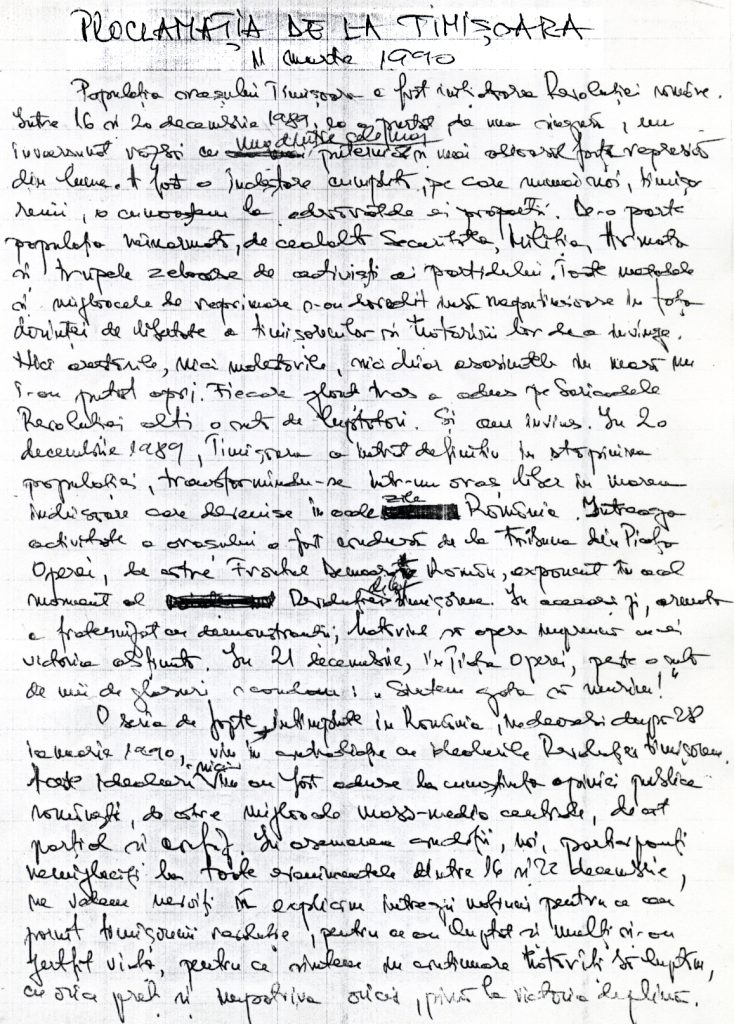 PROCLAMAȚIA DE LA TIMIȘOARA
11 martie 1990
Populația orașului Timișoara a fost inițiatoarea Revoluției române.
Între 16 și 20 decembrie 1989, ea a purtat, de una singură, un
înverșunat război cu unul dintre cele mai puternice și mai odioase forțe represive
din lume. A fost o încleștare cumplită, pe care numai noi, timișo
renii, o cunoaștem la adevăratele ei proporții. De-o parte
populația neînarmată, de cealaltă Securitatea, Miliția, Armata
și trupele zeloase de activiști ai partidului. Toate metodele
și mijloacele de reprimare s-au dovedit însă neputincioase în fața
dorinței de libertate a timișorenilor și hotărîrii lor de a învinge.
Nici arestările, nici molestările, nici chiar asasinatele în masă nu
i-au putut opri. Fiecare glonț tras a adus pe baricadele
Revoluției alți o sută de luptători. Și am învins. În 20
decembrie 1989, Timișoara a intrat definitiv în stăpînirea
populației, transformîndu-se într-un oraș liber în marea
închisoare care devenise în acele zile România. Întreaga
activitate a orașului a fost condusă de la tribuna din Piața
Operei, de către Frontul Democratic Român, exponent în acel
moment al Revoluției din Timișoara. În aceeași zi, armata
a fraternizat cu demonstranții, hotărînd să apere împreună cu ei
victoria obținută. În 21 decembrie, în Piața Operei, peste o sută
de mii de glasuri scandau: „Sîntem gata să murim!"
O serie de fapte întîmplate în România, îndeosebi după 28
ianuarie 1990, vin în contradicție cu idealurile Revoluției timișorene.
Aceste idealuri nici nu au fost aduse la cunoștința opiniei publice
românești, de către mijloacele mass-media centrale, decît
parțial și confuz. În asemenea condiții, noi, participanți
nemijlociți la toate evenimentele dintre 16 și 22 decembrie,
ne vedem nevoiți să explicăm întregii națiuni pentru ce au
pornit timișorenii revoluția, pentru ce au luptat și mulți și-au
jertfit viața, pentru ce sîntem în continuare hotărîți să luptăm,
cu orice preț și împotriva oricui, pînă la victoria deplină.